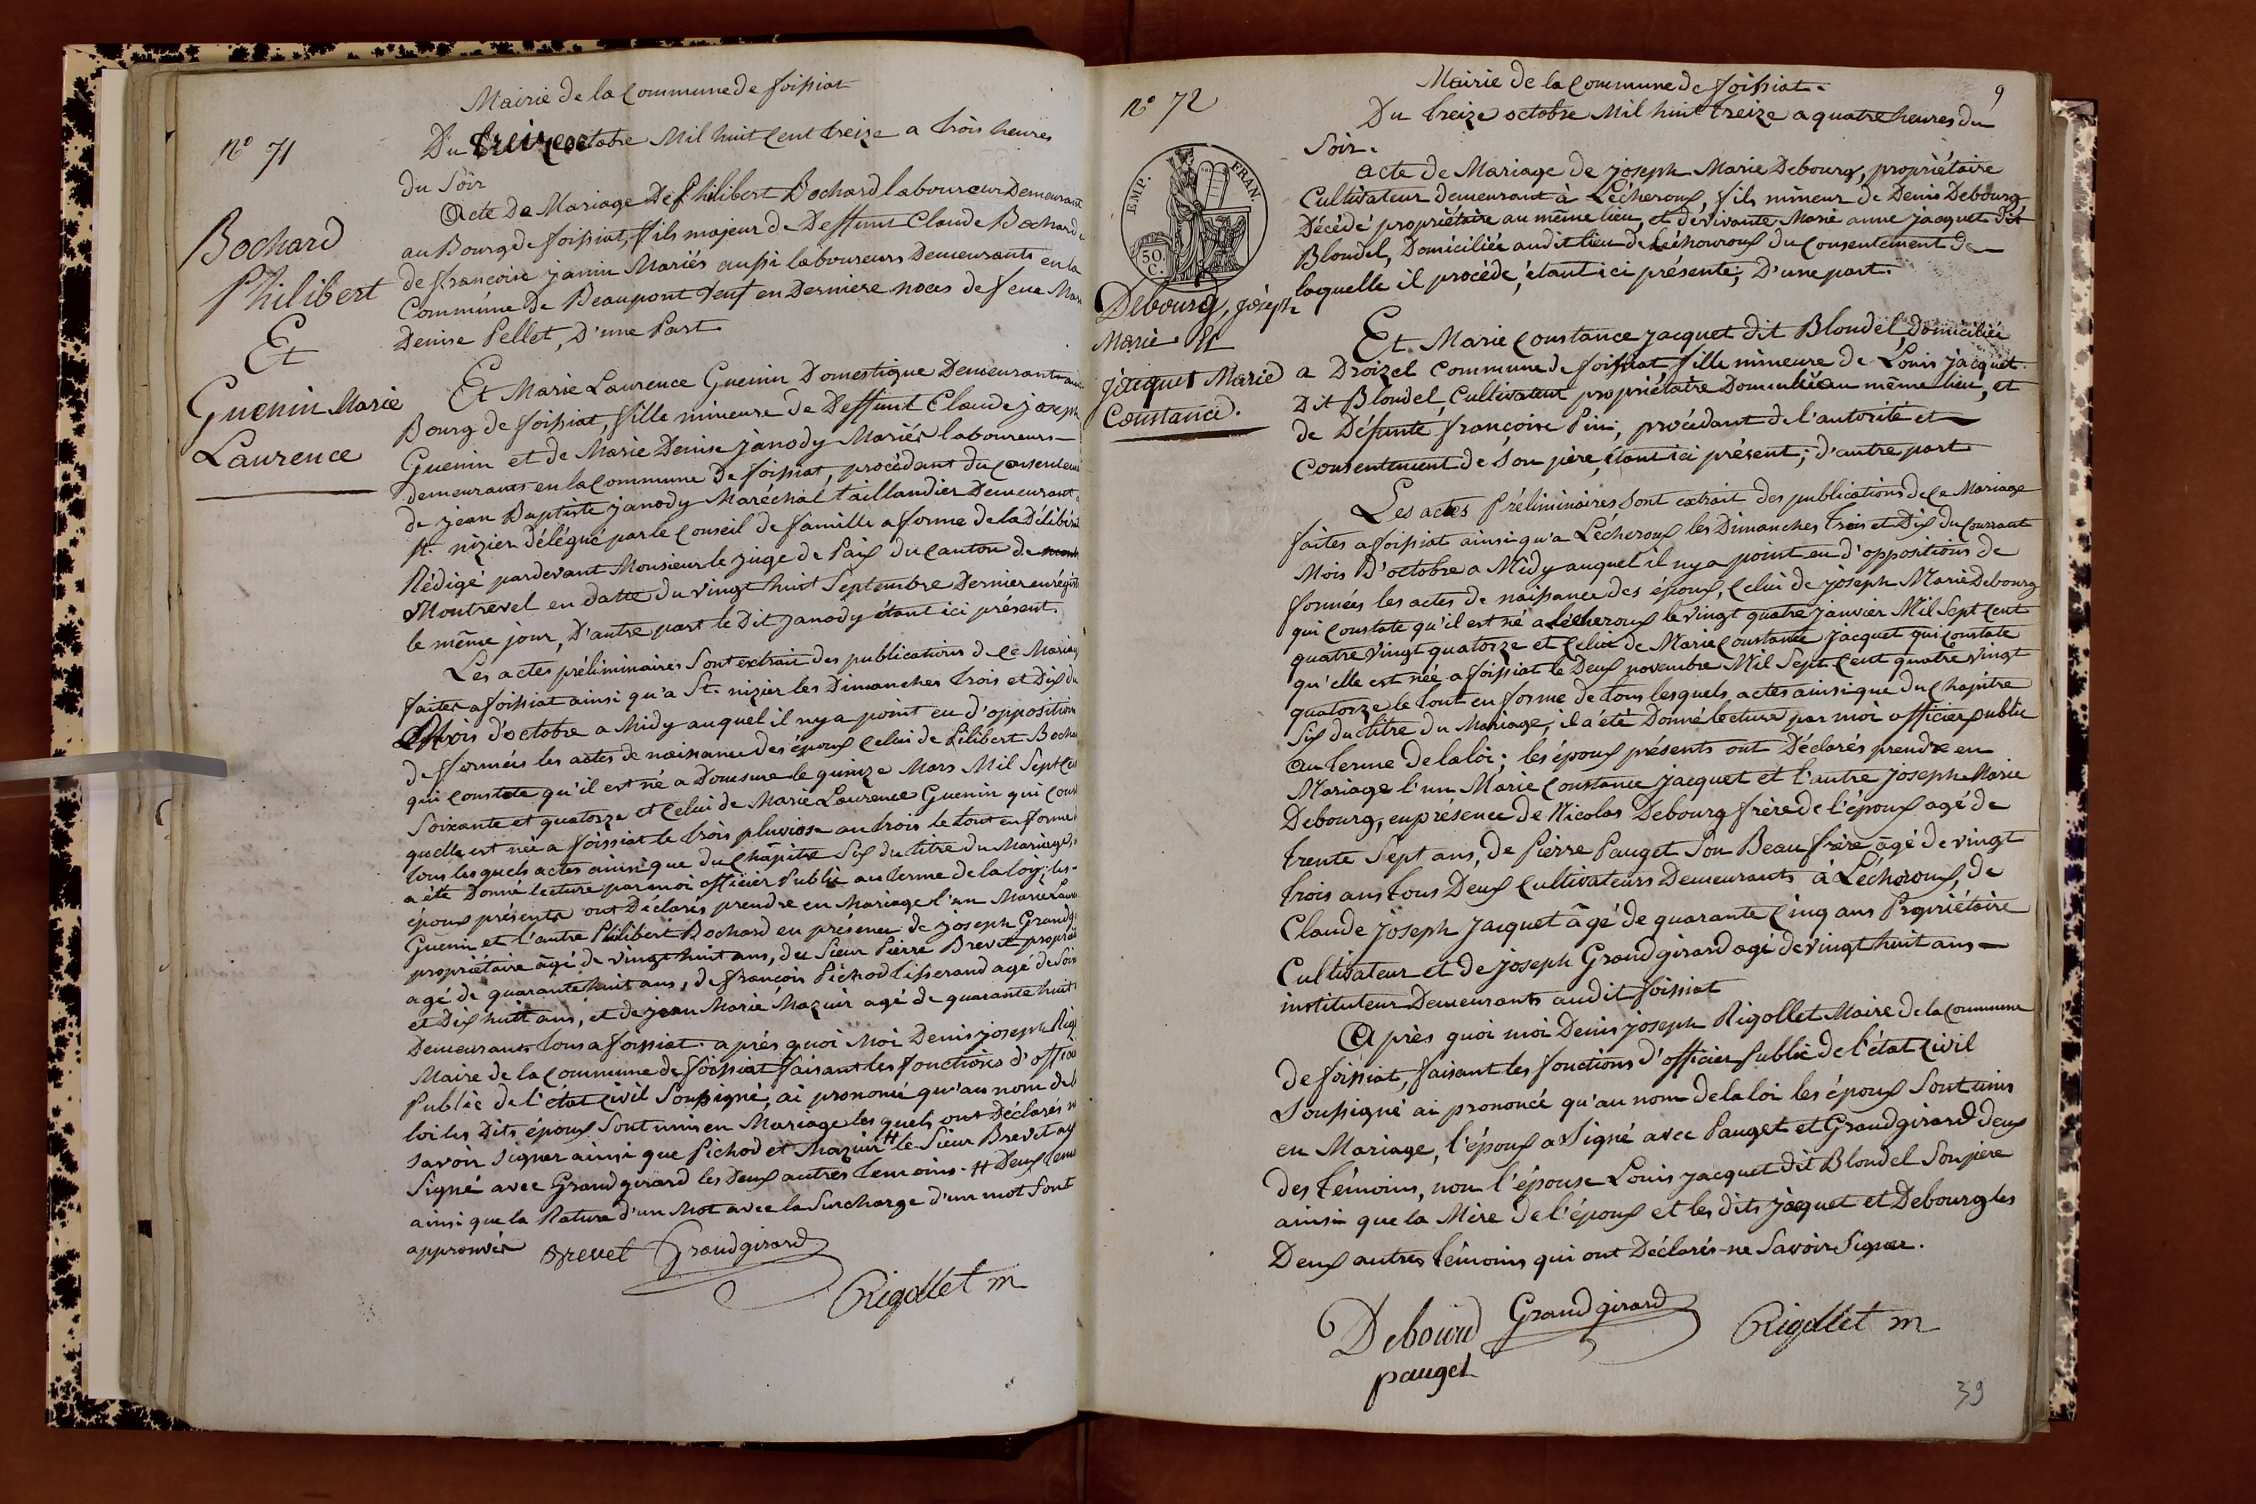 Mairie de la Commune de foissiat
n° 71
Du treize octobre Mil huit Cent treize a trois heures
du Soir
Bochard
Philibert
Et
Guenin Marie
Laurence
Acte De Mariage De Philibert Bochard laboureur Demeurant
au Bourg de foissiat, fils majeur de Deffunt Claude Bochard
de francoise janin Mariés aussi laboureurs Demeurants en la
Commune De Beaupont Veuf en Derniere noces de feue
Denise Pellet, D'une Part
Et Marie Laurence Guenin Domestique Demeurant au
Bourg de foissiat, fille mineure de Deffunt Claude joseph
Guenin et de Marie Denise janody Mariés laboureurs
demeurants en la Commune de foissiat, procédant du
de jean Baptiste janody Maréchal taillandier Demeurant
St. nizier délégué par le Conseil de famille a forme de la
Rédigé pardevant Monsieur le juge de Paix du Canton de
Montrevel en datte du vingt huit Septembre Dernier
le même jour, D'autre part le Dit janody étant ici présent.
Les actes préliminaires Sont extrait des publications de Ce
faites a foissiat ainsi qu'a St. nizier les Dimanches trois et Dix du
Mois d'octobre a Midy auquel il ny a point eu d'opposition
de formées les actes de naissance des époux Celui de Pilibert
qui Constate qu'il est né a Domsure le quinze Mars Mil Sept
Soixante et quatorze et Celui de Marie Laurence Guenin qui
quelle est née a foissiat le trois pluviose an trois le tout en forme
tous lesquels actes ainsi que du Chapitre Six du titre du Mariage,
a été Donné lecture par moi officier Public au terme de la loy; les
époux présents ont Déclarés prendre en Mariage l'un Marie
Guenin et l'autre Philibert Bochard en présence de joseph
propriétaire âgé de vingt huit ans, du Sieur Pierre Brevet
agé de quarante huit ans, de francois Pichod tisserand agé de
et Dix huit ans, et de jean Marie Mazuir agé de quarante huit
Demeurants tous a foissiat. après quoi Moi Denis joseph
Maire de la Commune de foissiat faisant les fonctions d'
Public de l'état Civil Soussigné, ai prononcé qu'au nom de
loi les Dits époux Sont unis en Mariage lesquels ont Déclarés
savoir signer ainsi que Pichod et Mazuir # le Sieur Brevet
Signé avec Grandgirard les Deux autres temoins. # Deux
ainsi que la Rature d'un Mot avec la Surcharge d'un mot sont
approuvés
Brevet Grandgirard
Rigollet m
Mairie de la Commune de foissiat.
9
n° 72
Du treize octobre Mil huit treize a quatre heures du
Soir.
EMP. FRAN.
50. C.
Debourg, joseph
Marie Et
jacquet Marie
Constance.
acte de Mariage de joseph Marie Debourg, propriétaire
Cultivateur demeurant à Lécheroux, fils mineur de Denis Debourg
Décédé propriétaire au même lieu, et de vivante Marie anne jacquet dit
Blondel, Domiciliée audit lieu de Léchouroux du Consentement de
laquelle il procède, étant ici présente, D'une part.
Et Marie Constance jacquet dit Blondel, domiciliée
a Droizel Commune de foissiat, fille mineure de Louis jacquet
Dit Blondel Cultivateur propriétaire Domicilié au même lieu, et
de Défunte francoise Pin, procédant de l'autorité et
Consentement de Son père, étant ici présent, d'autre part
Les actes Préliminaires Sont extrait des publications de Ce Mariage
faites a foissiat ainsi qu'a Lécheroux les Dimanches trois et Dix du Courrant
Mois d'octobre a Midy auquel il ny a point eu d'oppositions de
formées les actes de naissance des époux, Celui de joseph Marie Debourg
qui Constate qu'il est né a Lécheroux le vingt quatre janvier Mil Sept Cent
quatre vingt quatorze et Celui de Marie Constance jacquet qui Constate
qu'elle est née a foissiat le Deux novembre Mil Sept Cent quatre vingt
quatorze le tout en forme de tous lesquels actes ainsi que du Chapitre
Six du titre du Mariage, il a été Donné lecture par moi officier public
au terme de la loi; les époux présents ont Déclarés prendre en
Mariage l'un Marie Constance jacquet et l'autre joseph Marie
Debourg, en présence de Nicolas Debourg frère de l'époux agé de
trente Sept ans, de Pierre Pauget Son Beau frère âgé de vingt
trois ans tous Deux Cultivateurs Demeurants à Lécheroux, de
Claude joseph jacquet âgé de quarante Cinq ans Propriétaire
Cultivateur et de joseph Grandgirard agé de vingt huit ans
instituteur Demeurants audit foissiat
Après quoi moi Denis joseph Rigollet Maire de la Commune
de foissiat, faisant les fonctions d'officier Public de l'état Civil
Soussigné ai prononcé qu'au nom de la loi les époux Sont unis
en Mariage, l'époux a Signé avec Pauget et Grandgirard deux
des témoins, non l'épouse Louis jacquet dit Blondel Son père
ainsi que la Mère de l'époux et les dits jacquet et Debourg les
Deux autres témoins qui ont Déclarés ne Savoir Signer.
Debourd Grandgirard Rigollet m
pauget
39